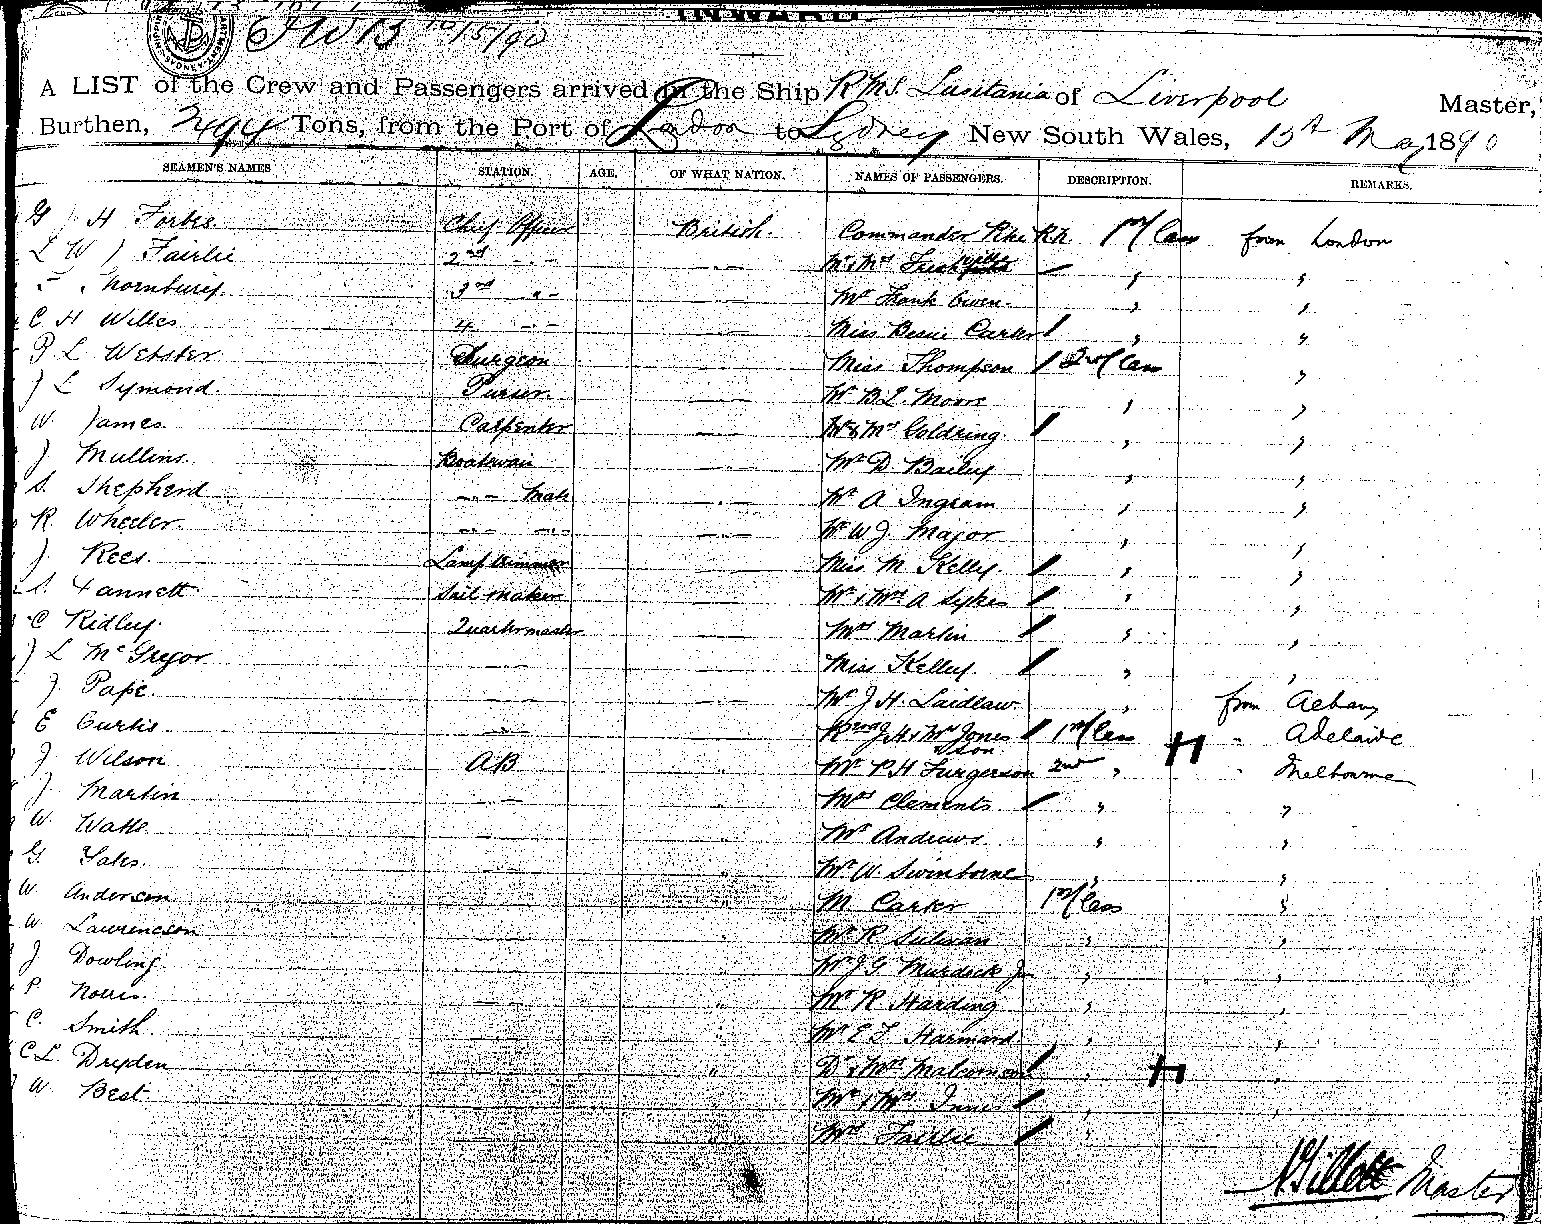 INWARD
10/5/90
A LIST of the Crew and Passengers arrived in the Ship R.M.S. Lusitania of Liverpool Master,
Burthen, 2494 Tons, from the Port of London to Sydney New South Wales, 15th May 1890
SEAMEN'S NAMES STATION. AGE. OF WHAT NATION. NAMES OF PASSENGERS. DESCRIPTION. REMARKS.
G J H Forbes Chief Officer British. Commander R.N. 1st Class from London
L W J Fairlie 2nd " " Mr & Mrs " "
Thornbury 3rd " " Mr Frank Owen " "
C H Willes 4 " " Miss Bessie Carter " "
P L Webster Surgeon " Miss Thompson 2nd Class "
J L Symond Purser " Mr B L Moore " "
W James Carpenter " Mr & Mrs Goldring " "
J Mullins Boatswain Mr D Bailey " "
S. Shepherd " Mate " Mr A Ingram " "
R Wheeler " " " Mr W J Major " "
J Rees. Lamp trimmer " Miss M Kelly " "
S. Fannett Sail maker " Mr & Mrs A Sykes " "
C Ridley. Quartermaster " Mrs Martin " "
J L McGregor " " Miss Kelley " "
J. Pape " " Mr J H. Laidlaw " from Albany
E Curtis " " J H & Mrs Jones & son 1st Class " Adelaide
J Wilson AB " Mr P H Furgerson 2nd " " Melbourne
J Martin " " Mrs Clements " "
W. Watts " " Mr Andrews " "
G. " " Mr W. Swinborne " "
W. Anderson " " M Carter 1st Class "
W Lawrenson " " Mr R Sulivan " "
J Dowling " " Mr J G Murdock Jn " "
P. Norris. " " Mr R Harding " "
C. Smith " " Mr E L " "
C L Dryden " " Dr & Mrs " "
W Best " " Mr & Mrs Innes " "
" " Mrs Fairlie "
Master